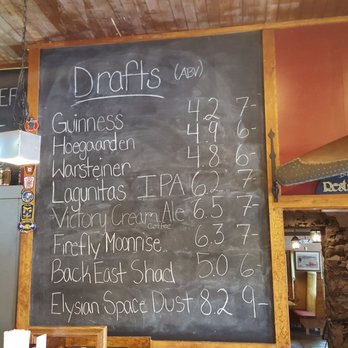 Drafts (ABV)
Guinness 4.2 7-
Hoegaarden 4.9 6-
Warsteiner 4.8 6-
Lagunitas IPA 6.2 7-
Victory Cream Ale 6.5 7-
coffee
Firefly Moonrise.. 6.3 7-
Back East Shad 5.0 6-
Elysian Space Dust 8.2 9-